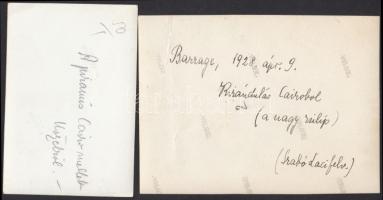 50
A piramis
Cairo mellett
közelről. –
Barrage, 1928. ápr. 9.
Kirándulás Cairoból
(a nagy zsilip)
(Szabó Laci felv.)